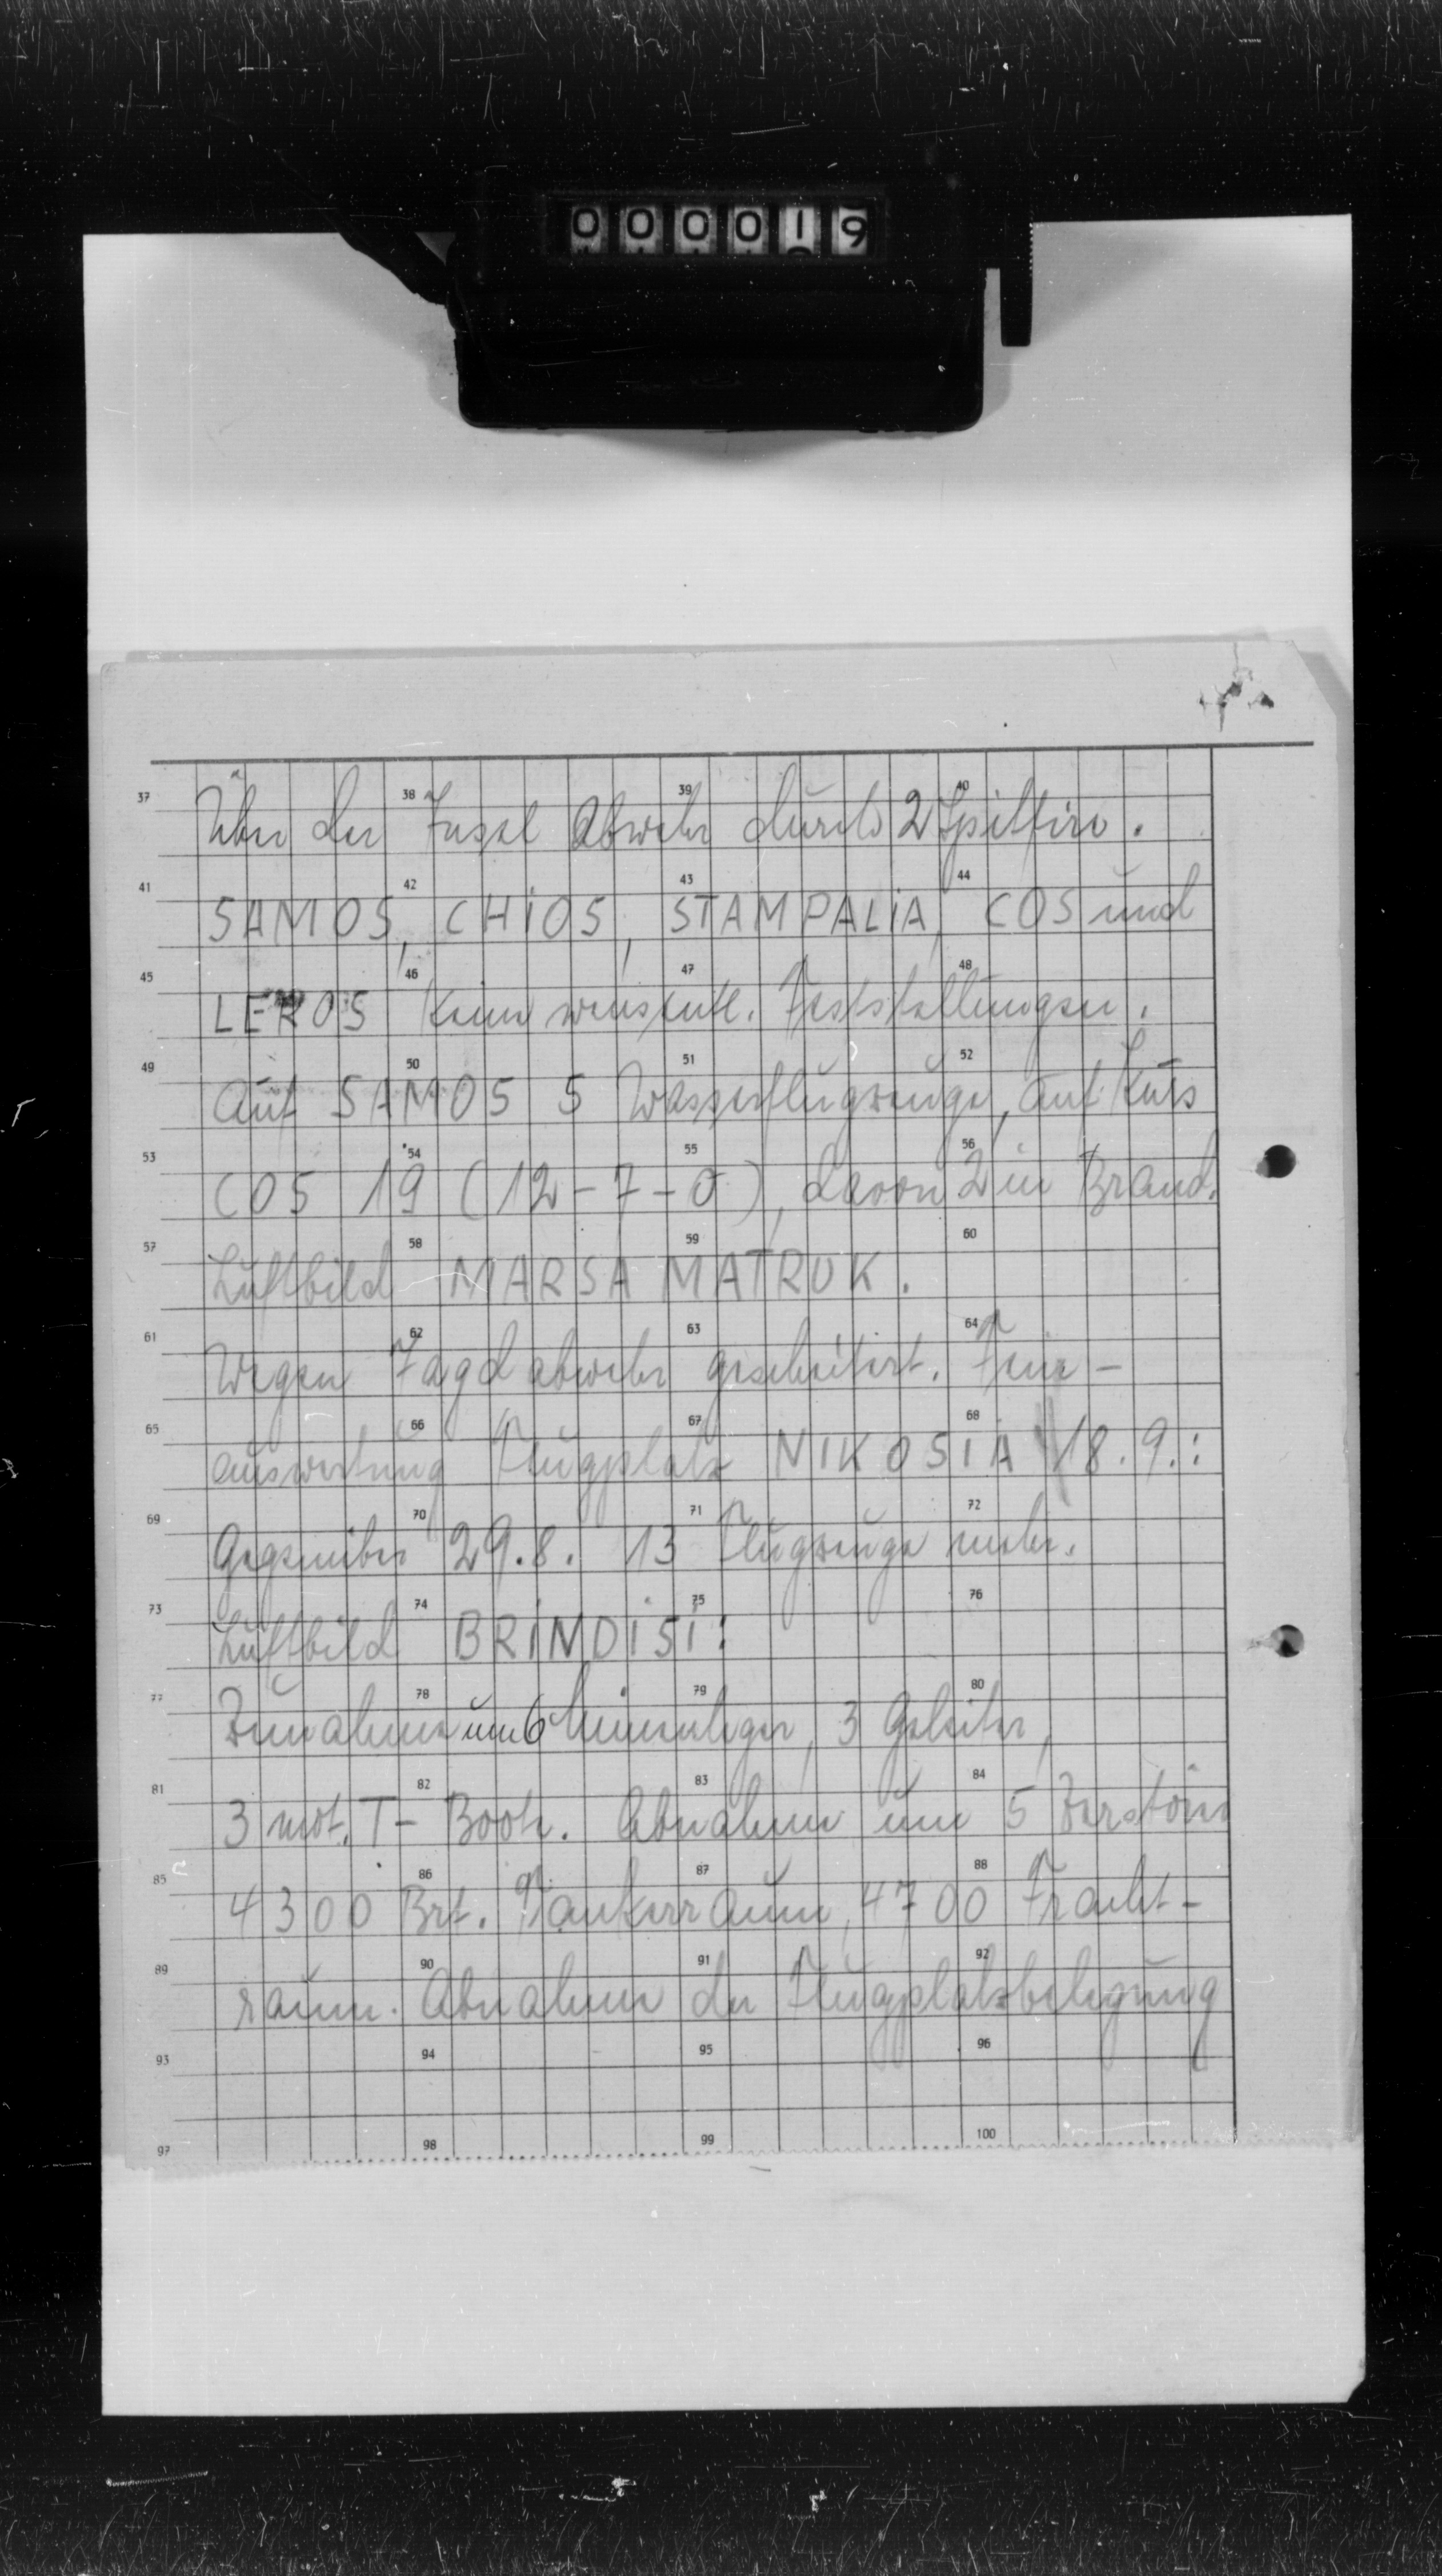 000019
37 38 39 40
Über der Insel Abwehr durch 2 Spitfire.
41 42 43 44
SAMOS, CHIOS, STAMPALIA, COS und
45 46 47 48
LEROS keine wesentl. Feststellungen.
49 50 51 52
Auf SAMOS 5 Wasserflugzeuge, auf
53 54 55 56
COS 19 (12-7-0), davon 2 in Brand.
57 58 59 60
Luftbild MARSA MATRUK.
61 62 63 64
Wegen Jagdabwehr gescheitert. Fein-
65 66 67 68
auswertung Flugplatz NIKOSIA 18.9.:
69 70 71 72
Gegenüber 29.8. 13 Flugzeuge mehr.
73 74 75 76
Luftbild BRINDISI:
77 78 79 80
Zunahme um 6 Minenleger, 3 Geleiter,
81 82 83 84
3 mot. T-Boote. Abnahme um 5 Zerstörer
85 86 87 88
4300 Brt. Tankerraum, 4700 Fracht-
89 90 91 92
raum. Abnahme der Flugplatzbelegung
93 94 95 96
97 98 99 100